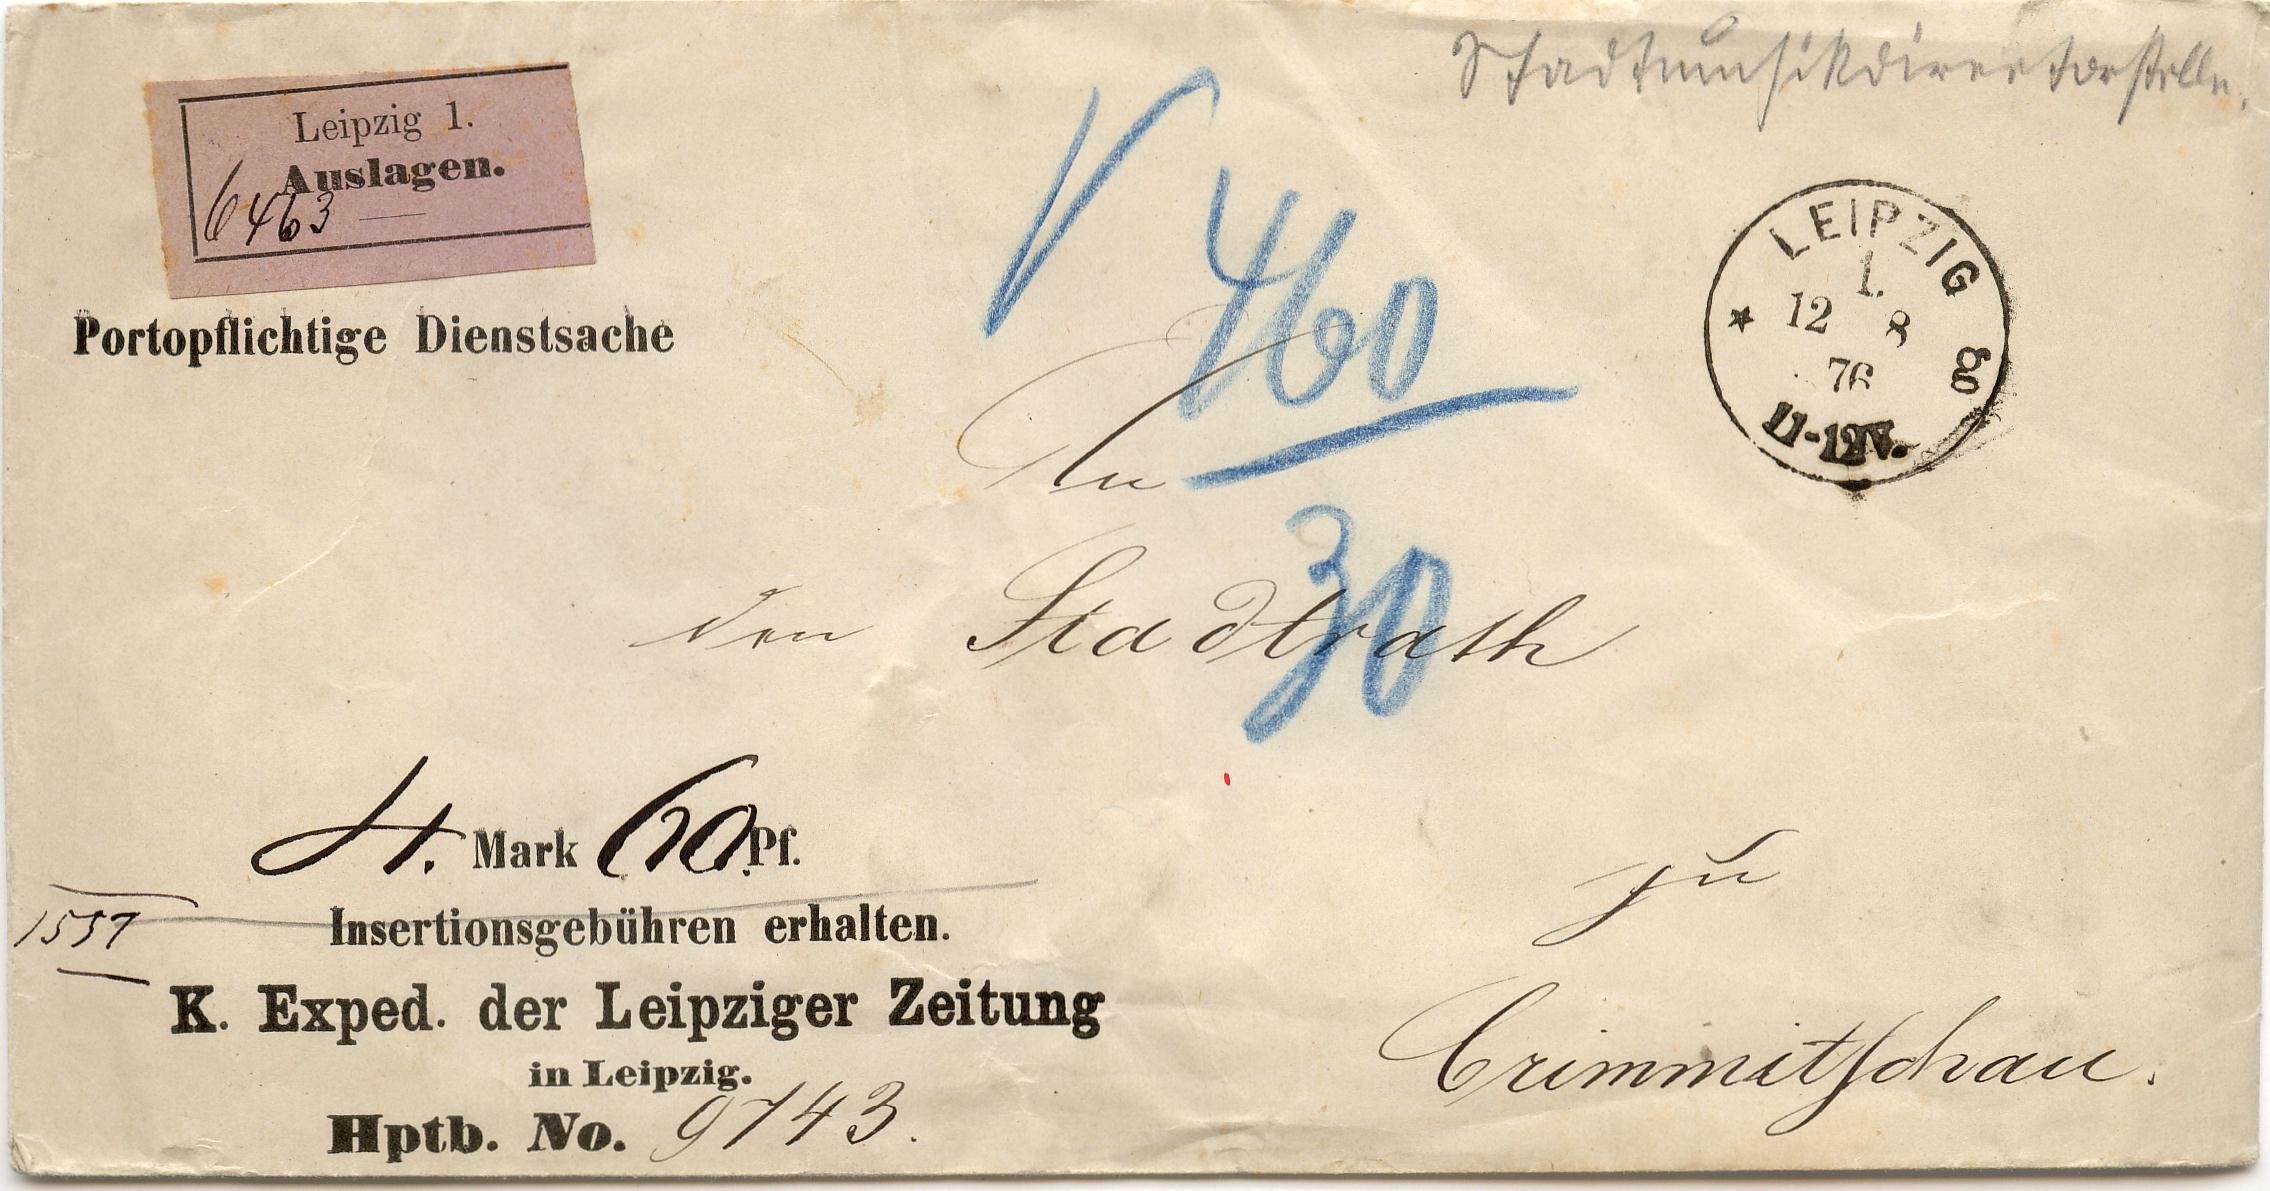 Stadtmusikdirectorstelle.
Leipzig 1.
Auslagen.
6463
Portopflichtige Dienstsache
460
30
LEIPZIG
1.
12 8
76
11-12V.
An
den Stadtrath
zu
Crimmitschau.
4. Mark 60 Pf.
Insertionsgebühren erhalten.
K. Exped. der Leipziger Zeitung
in Leipzig.
Hptb. No. 9743.